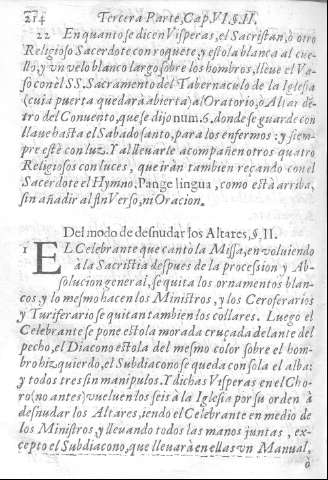 214 Tercera Parte, Cap. VI. §. II.
22 En quanto se dicen Visperas, el Sacristan, ò otro
Religioso Sacerdote con roquete, y estola blanca al cue-
llo, y vn velo blanco largo sobre los hombros, lleve el Va-
so con el SS. Sacramento del Tabernaculo de la Iglesia
(cuia puerta quedarà abierta) al Oratorio, ò Altar dē-
tro del Convento, que se dijo num. 6. donde se guarde con
llave hasta el Sabado santo, para los enfermos: y siem-
pre estè con luz. Y al llevarle acompañen otros quatro
Religiosos con luces, que iràn tambien reçando con el
Sacerdote el Hymno, Pange lingua, como està arriba,
sin añadir al fin Verso, ni Oracion.
Del modo de desnudar los Altares, §. II.
1 EL Celebrante que cantò la Missa, en volviendo
à la Sacristia despues de la procession y Ab-
solucion general, se quita los ornamentos blan-
cos, y lo mesmo hacen los Ministros, y los Ceroferarios
y Turiferario se quitan tambien los collares. Luego el
Celebrante se pone estola morada cruçada delante del
pecho, el Diacono estola del mesmo color sobre el hom-
bro hizquierdo, el Subdiacono se queda con sola el alba:
y todos tres sin manipulos. Y dichas Visperas en el Cho-
ro (no antes) vuelven los seis à la Iglesia por su orden à
desnudar los Altares, iendo el Celebrante en medio de
los Ministros, y llevando todos las manos juntas, ex-
cepto el Subdiacono, que llevarà en ellas vn Manual,
ò